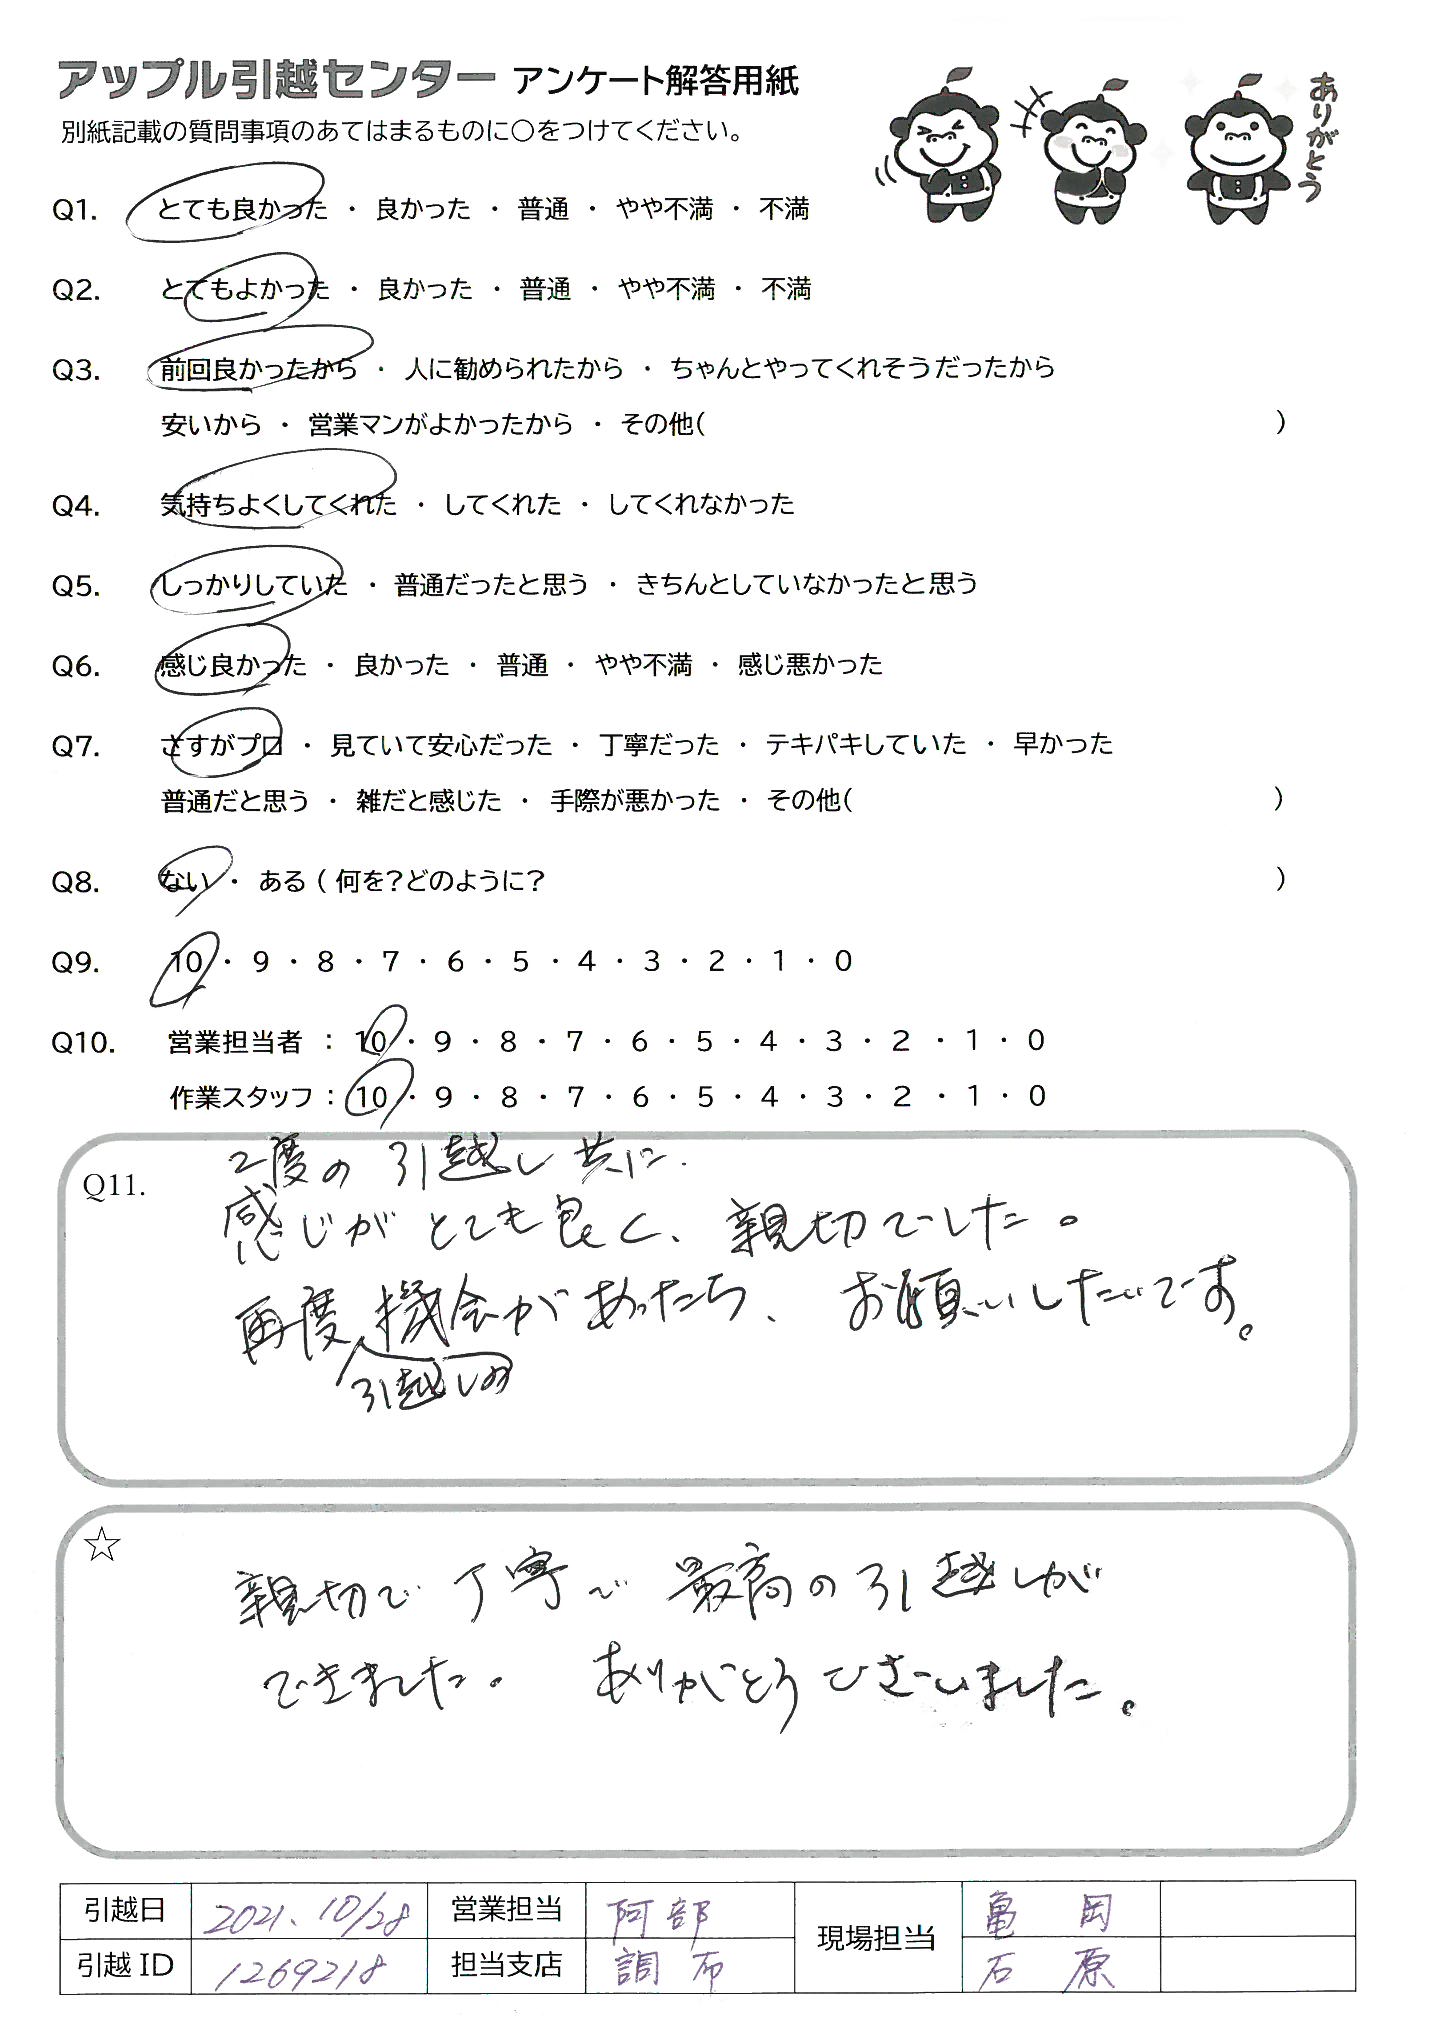 アップル引越センター アンケート解答用紙
ありがとう
別紙記載の質問事項のあてはまるものに○をつけてください。
Q1. とても良かった ・ 良かった ・ 普通 ・ やや不満 ・ 不満
Q2. とてもよかった ・ 良かった ・ 普通 ・ やや不満 ・ 不満
Q3. 前回良かったから ・ 人に勧められたから ・ ちゃんとやってくれそうだったから
安いから ・ 営業マンがよかったから ・ その他( )
Q4. 気持ちよくしてくれた ・ してくれた ・ してくれなかった
Q5. しっかりしていた ・ 普通だったと思う ・ きちんとしていなかったと思う
Q6. 感じ良かった ・ 良かった ・ 普通 ・ やや不満 ・ 感じ悪かった
Q7. さすがプロ ・ 見ていて安心だった ・ 丁寧だった ・ テキパキしていた ・ 早かった
普通だと思う ・ 雑だと感じた ・ 手際が悪かった ・ その他( )
Q8. ない ・ ある ( 何を?どのように? )
Q9. 10 ・ 9 ・ 8 ・ 7 ・ 6 ・ 5 ・ 4 ・ 3 ・ 2 ・ 1 ・ 0
Q10. 営業担当者 : 10 ・ 9 ・ 8 ・ 7 ・ 6 ・ 5 ・ 4 ・ 3 ・ 2 ・ 1 ・ 0
作業スタッフ : 10 ・ 9 ・ 8 ・ 7 ・ 6 ・ 5 ・ 4 ・ 3 ・ 2 ・ 1 ・ 0
Q11. 2度の引越し共に、
感じがとても良く、親切でした。
再度 機会があったら、お願いしたいです。
引越しの
☆
親切で丁寧で最高の引越しが
できました。ありがとうございました。
引越日 2021.10/28 営業担当 阿部 現場担当 亀岡
引越ID 1269218 担当支店 調布 石原